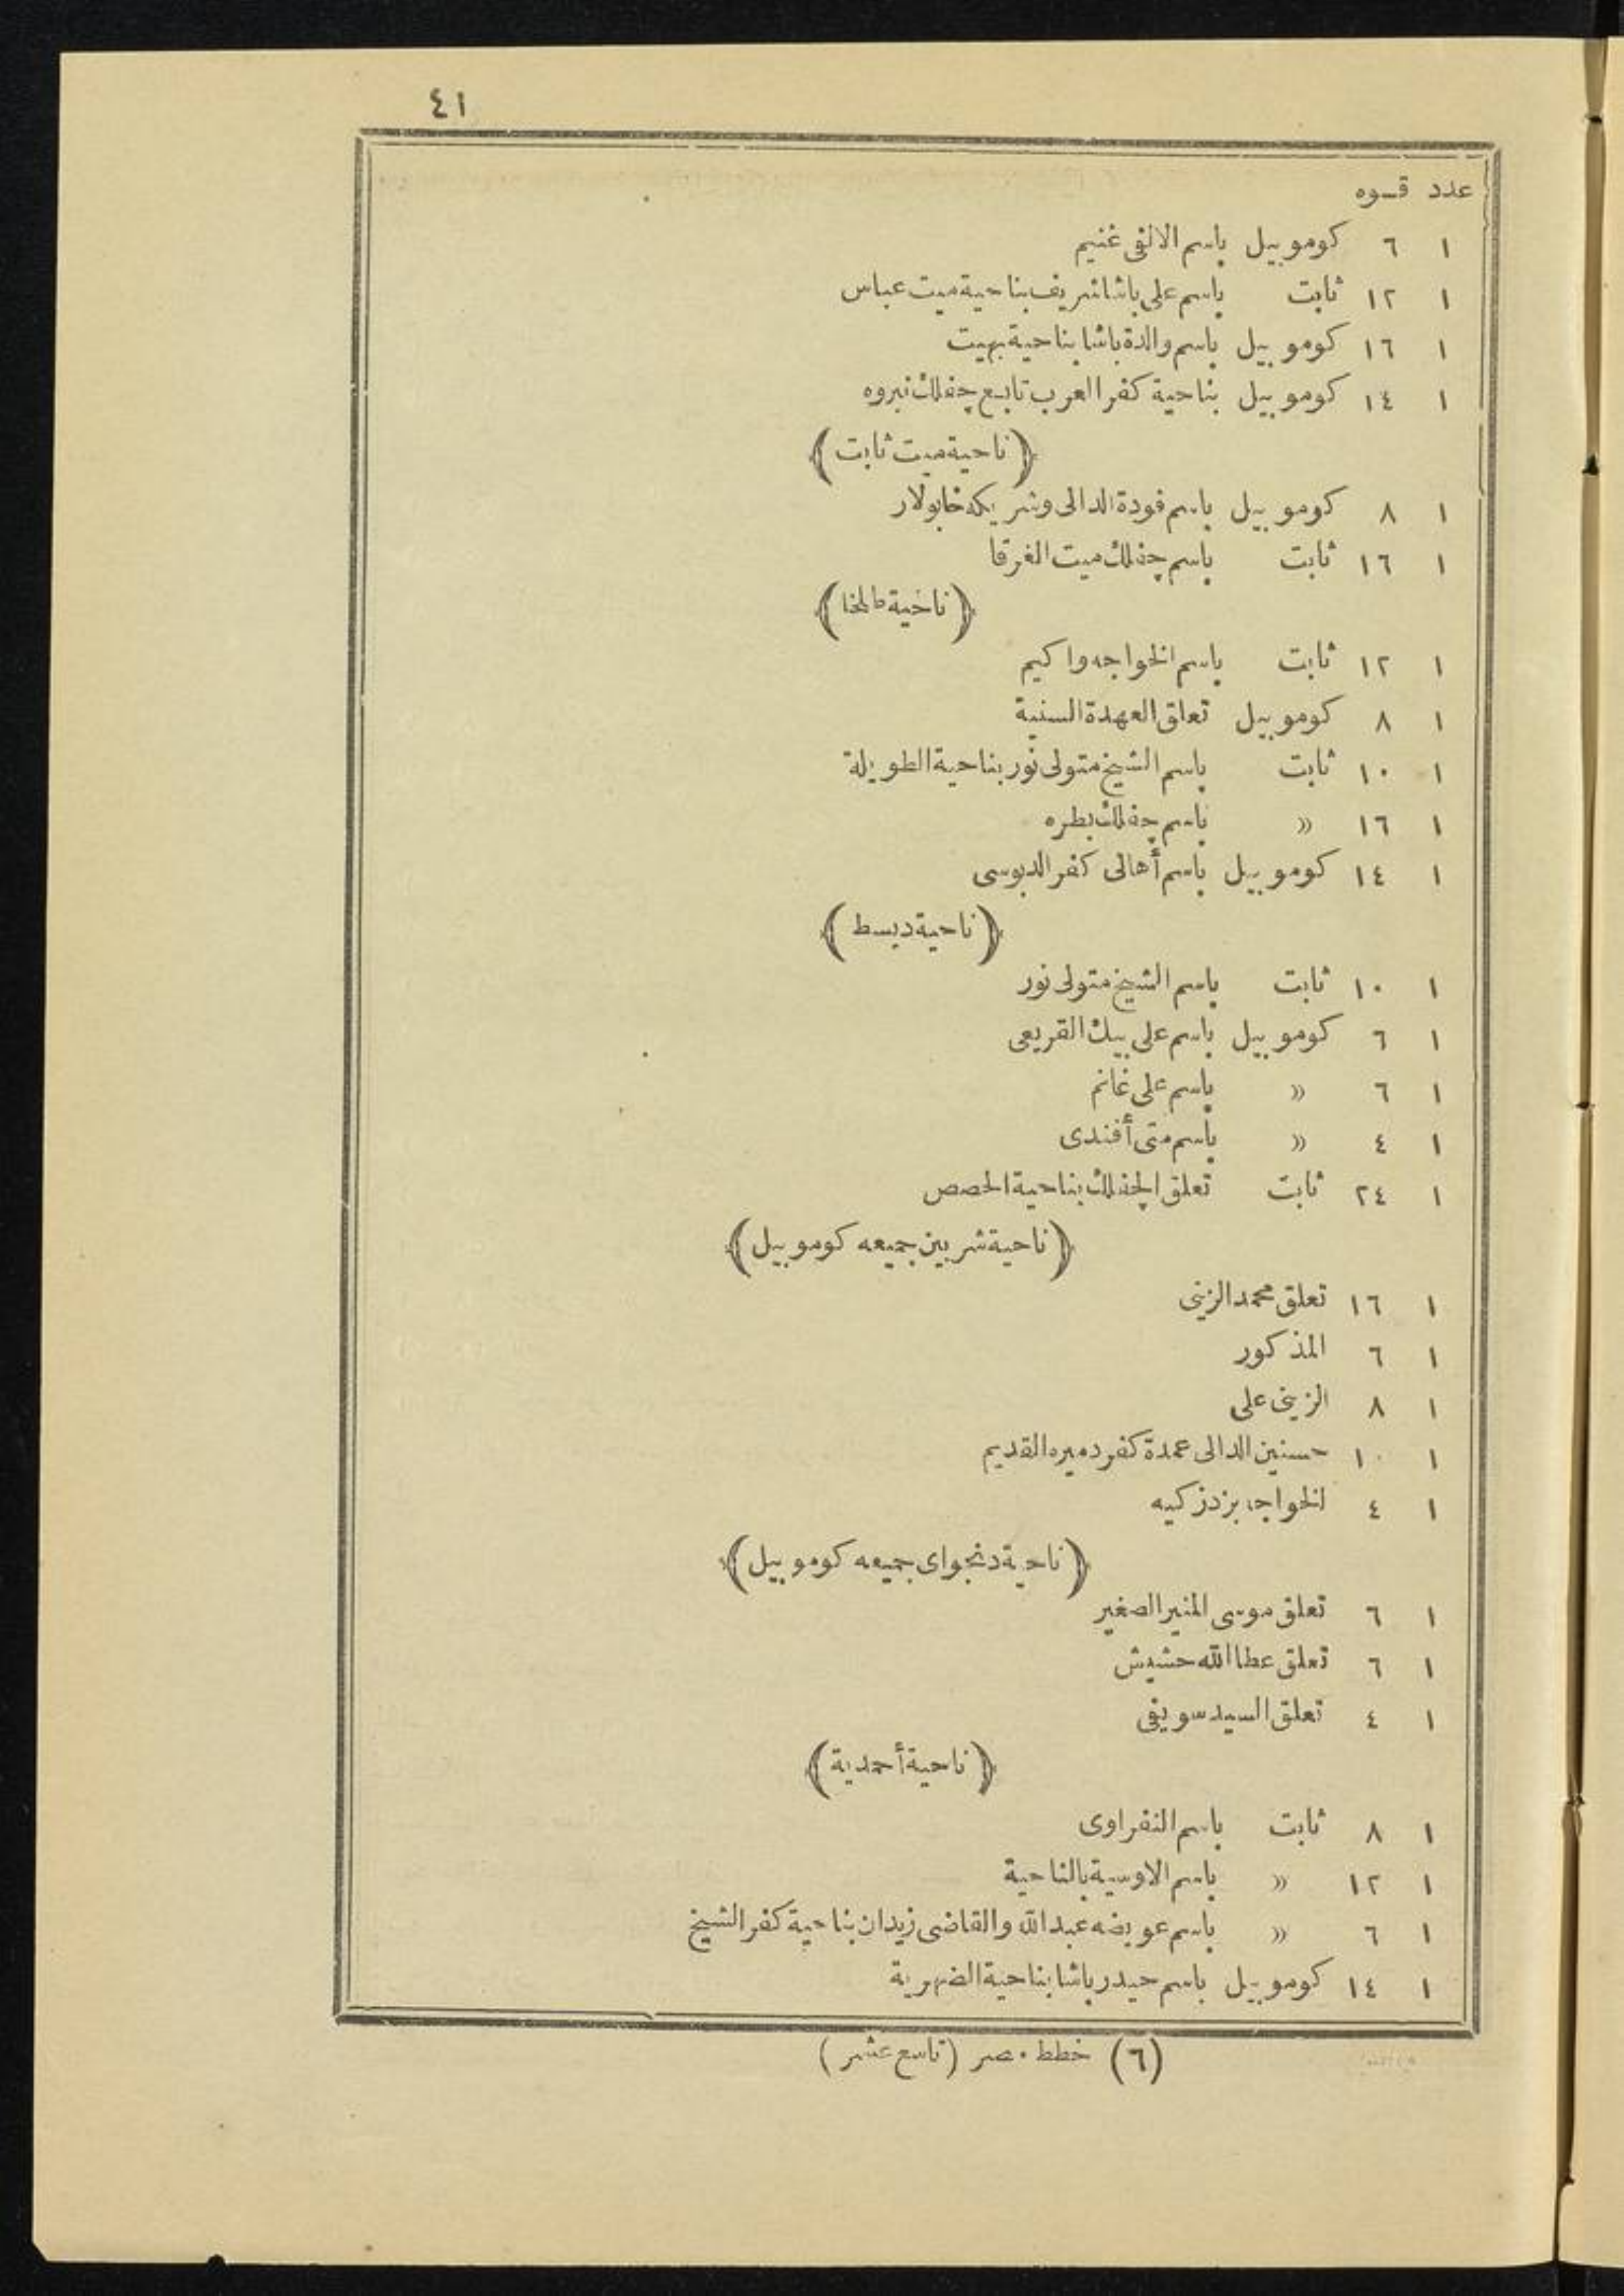 ٤١
عدد قوه
١ ٦ كوموبيل باسم الالفى غنيم
١ ١٢ ثابت باسم على باشا شريف بناحية ميت عباس
١ ١٦ كوموبيل باسم والدة باشا بناحية بهيت
١ ١٤ كوموبيل بناحية كفر العرب تابع چفلك نبروه
﴿ناحية ميت ثابت﴾
١ ٨ كوموبيل باسم فودة الدالى وشريكه خابولار
١ ١٦ ثابت باسم چفلك ميت الغرقا
﴿ناحية طلخا﴾
١ ١٢ ثابت باسم الخواجه واكيم
١ ٨ كوموبيل تعلق العهدة السنية
١ ١٠ ثابت باسم الشيخ متولى نور بناحية الطويلة
١ ١٦ » باسم چفلك بطره
١ ١٤ كوموبيل باسم أهالى كفر الدبوسى
﴿ناحية ديسط﴾
١ ١٠ ثابت باسم الشيخ متولى نور
١ ٦ كوموبيل باسم على بيك القريعى
١ ٦ » باسم على غانم
١ ٤ » باسم متى أفندى
١ ٢٤ ثابت تعلق الچفلك بناحية الحصص
﴿ناحية شربين جميعه كوموبيل﴾
١ ١٦ تعلق محمد الزينى
١ ٦ المذكور
١ ٨ الزينى على
١ ١٠ حسنين الدالى عمدة كفر دميره القديم
١ ٤ الخواجه بزدزكيه
﴿ناحية دنجواى جميعه كوموبيل﴾
١ ٦ تعلق موسى المنير الصغير
١ ٦ تعلق عطا الله حشيش
١ ٤ تعلق السيد سويفى
﴿ناحية أحمدية﴾
١ ٨ ثابت باسم النفراوى
١ ١٢ » باسم الاوسية بالناحية
١ ٦ » باسم عويضه عبد الله والقاضى زيدان بناحية كفر الشيخ
١ ١٤ كوموبيل باسم حيدر باشا بناحية الضهرية
(٦) خطط مصر (تاسع عشر)